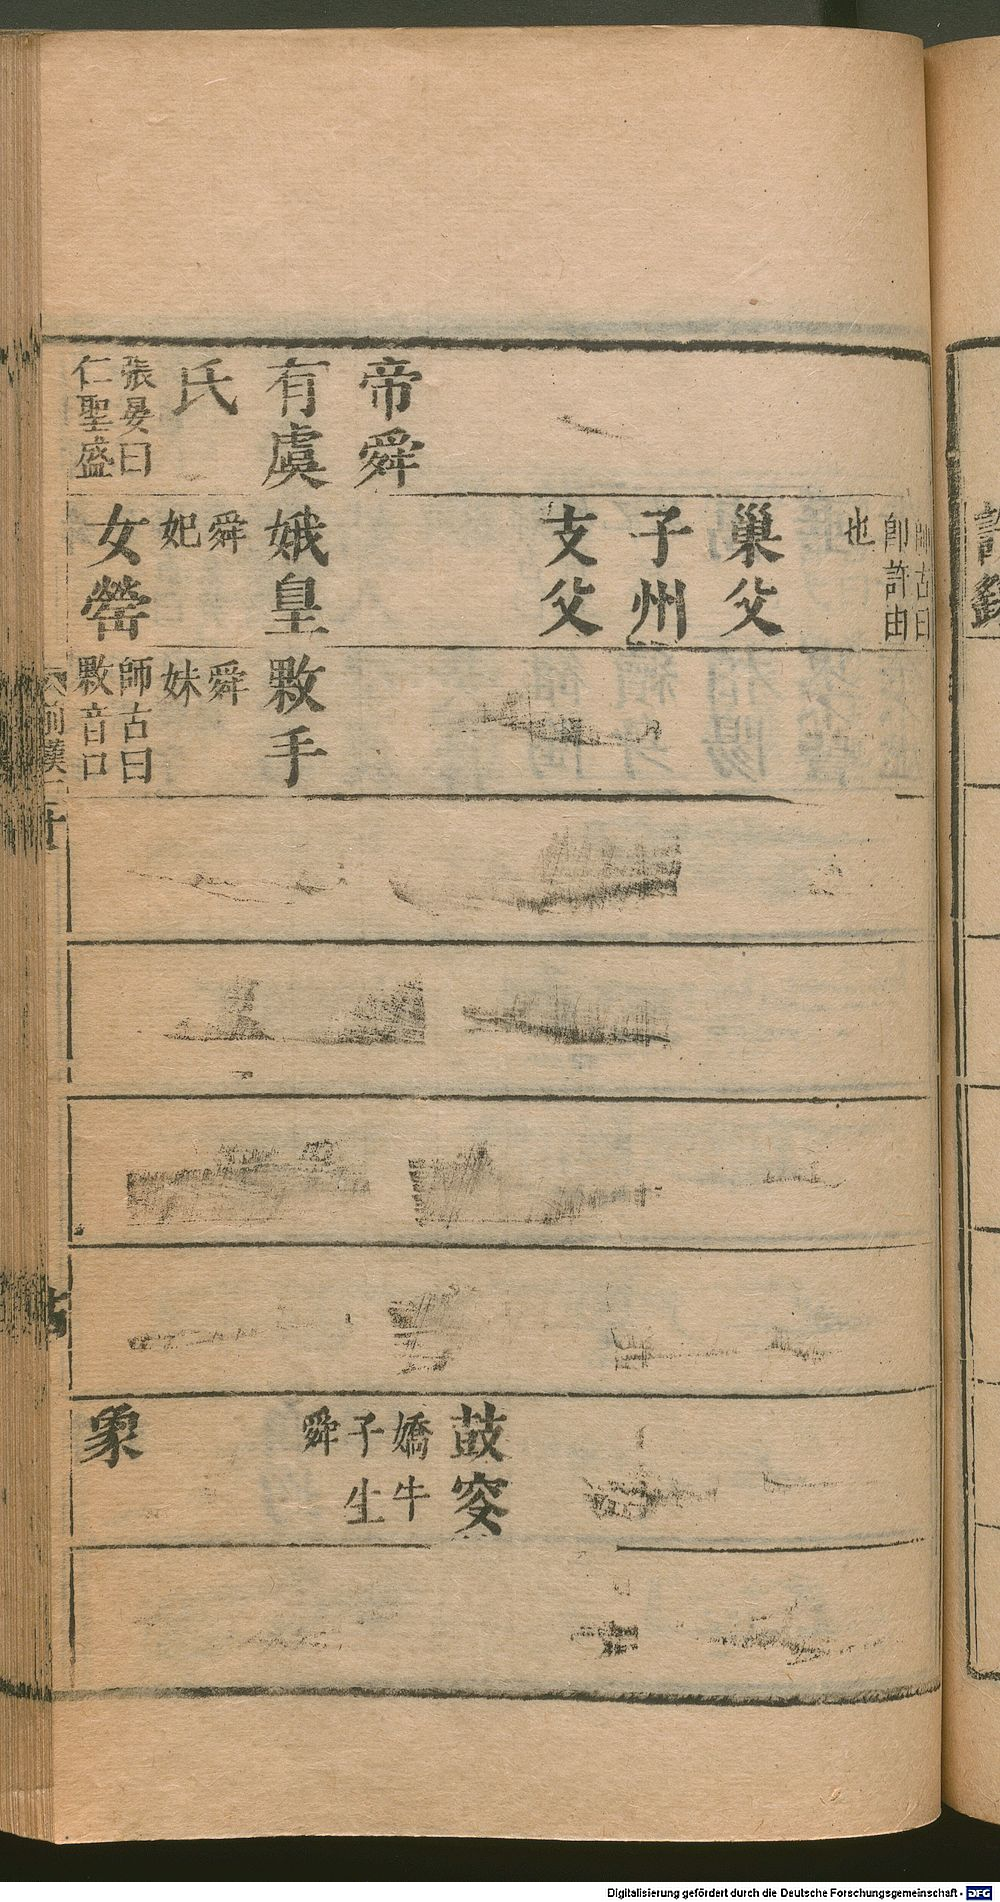 帝舜
有虞
氏
張晏曰
仁聖盛
師古曰
即許由
也
巢父
子州
支父
娥皇
舜
妃
女罃
敤手
舜
妹
師古曰
敤音口
鼓叜
嬌牛
子生
舜
象
前漢二十
Digitalisierung gefördert durch die Deutsche Forschungsgemeinschaft - DFG